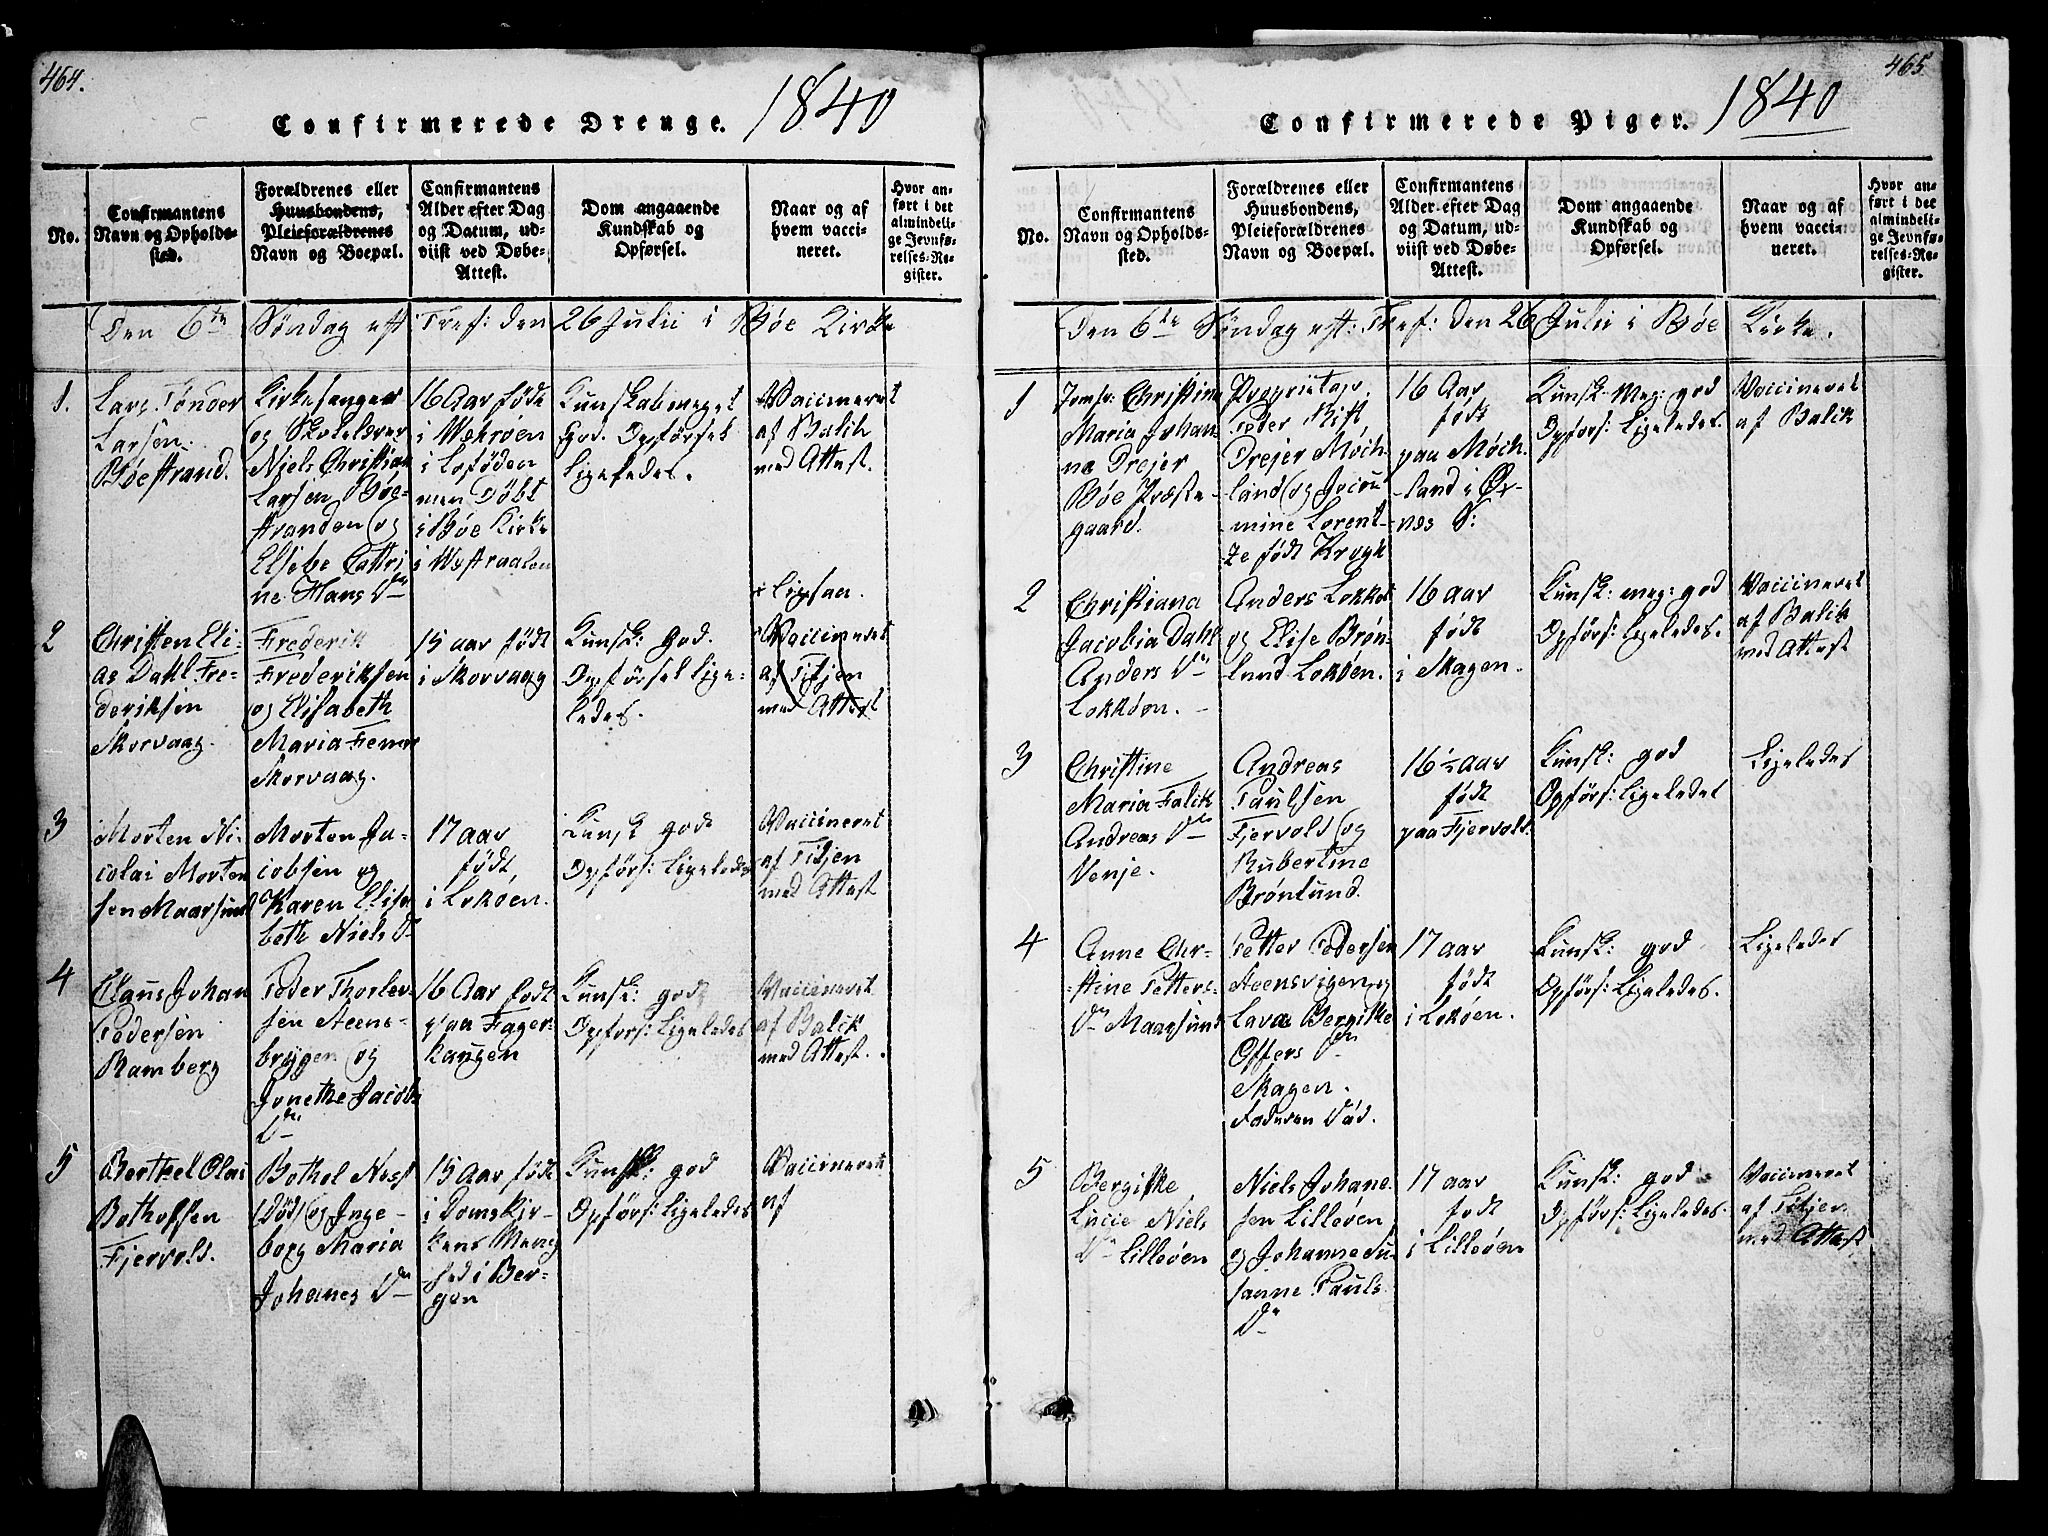 464.
Confirmerede Drenge. 1840
No.
Confirmantens
Navn og Opholds-
sted.
Forældrenes eller
Huusbondens,
Pleieforældrenes
Navn og Boepæl.
Confirmantens
Alder efter Dag
og Datum, ud-
viist ved Døbe-
Attest.
Dom angaaende
Kundskab og
Opførsel.
Naar og af
hvem vacci-
neret.
Hvor an-
ført i det
almindeli-
ge Jevnfø-
relses-Re-
gister.
Den 6te Søndag eft Tref: den 26 Julii i Bøe Kirke
1.
Lars Tønder
Larsen.
Bøestrand.
Kirkesanger
og Skolelærer
Niels Christian
Larsen Bøe-
stranden og
Elsebe Cathri
ne Hans Dr
16 Aar født
i Wærøen
i Lofoden
men Døbt
i Bøe Kirke
i Westraalen
Kunskab meget
god. Opførsel
ligeledes.
Vaccineret
af Balik
med Attest.
2
Christen Eli-
as Dahl Fre-
deriksen
Skorvaag.
Frederik
Frederiksen
og Elisabeth
Maria
Skorvaag.
15 aar født
i Skorvaag
Kunsk: god.
Opførsel lige-
ledes.
Vaccineret
af Titjen
med Attest
3
Morten Ni
colai Morten
sen Maarsund
Morten Ja-
cobsen og
Karen Elisa
beth Niels Dr
17 aar
født,
i Lokøen.
Kunsk god
Opførs: Ligeledes
Vaccineret
af Titjen
med Attest
4
Claus Johan
Pedersen
Ramberg
Peder Thorlev-
sen Steens-
bryggen og
Jonethe Jacobs
Dr
16 Aar født
paa Fager-
haugen
Kunsk: god
Opførs: Ligeledes
Vaccineret
af Balik
med Attest.
5
Berthel Olai
Bothofsen
Fjervold.
Bothol
Død og Inge-
borg Maria
Johanes Dr
15 Aar født
i Domskir-
kens Menig
hed i Ber-
gen
Kunsk: god
Opførs: Ligeledes
Vaccineret
af
465
Confirmerede Piger. 1840
No.
Confirmantens
Navn og Opholds-
sted.
Forældrenes eller
Huusbondens,
Pleieforældrenes
Navn og Boepæl.
Confirmantens
Alder efter Dag
og Datum, ud-
viist ved Døbe-
Attest.
Dom angaaende
Kundskab og
Opførsel.
Naar og af
hvem vacci-
neret.
Hvor an-
ført i det
almindeli-
ge Jevnfø-
relses-Re-
gister.
Den 6te Søndag eft: Tref: den 26 Julii i Bøe Kirke.
1
Jomfr: Christine
Maria Johan
ne Drejer
Bøe Præste-
gaard.
Proprietair
Peder Kist
Drejer Moch
land og Jaco
mine Lorent-
ze født Krogh
16 Aar
født
paa Moch
land i Ør-
nes S:
Kunsk: Meg: god
Opførs: Ligeledes.
Vaccineret
af Balik
2
Christiana
Jacobia Dahl
Anders Dr
Lokkøen.
Anders Lokkøe
og Elise Brøn
lund Lokøen.
16 aar
født
i Skagen.
Kunsk: meg: god
Opførs: Ligeledes.
Vaccineret
af Balik
med Attest
3
Christine
Maria Falck
Andreas Dr
Venje.
Andreas
Paulsen
Fjervold og
Rubertine
Brønlund.
16½ aar
født
paa Fjervold.
Kunsk: god
Opførs: Ligeledes
Ligeledes
4
Anne Chr-
stine Petters-
Dr Maarsund
Petter Pedersen
Steensvigen og
Lava Bergithe
Offers Dr
Skagen.
Faderen Død.
17 aar
født
i Lokøen.
Kunsk: god
Opførs: Ligeledes.
Ligeledes
5
Bergithe
Lucie Niels
Dr Lilleøen
Niels Johane
sen Lilleøen
og Johanne Su
sanne Pauls
Dr
17 aar
født
i Lilleøen
Kunsk: god
Opførs: Ligeledes.
Vaccineret
af Titjen
med Attest